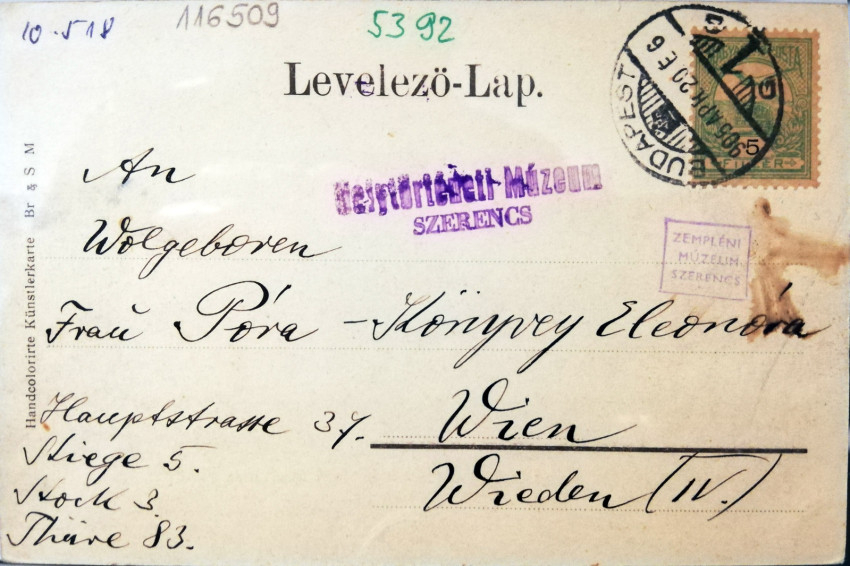 10.518
116509
5392
Levelező-Lap.
BUDAPEST
905 APR 20 E 6
5
FILLÉR
Helytörténeti Múzeum
SZERENCS
ZEMPLÉNI
MÚZEUM
SZERENCS
Handcolorirte Künstlerkarte Br & S M
An
Wolgeboren
Frau Póra - Könyvey Eleonóra
Hauptstrasse 37. Wien
Stiege 5. Wieden (IV.)
Stock 3.
Thüre 83.